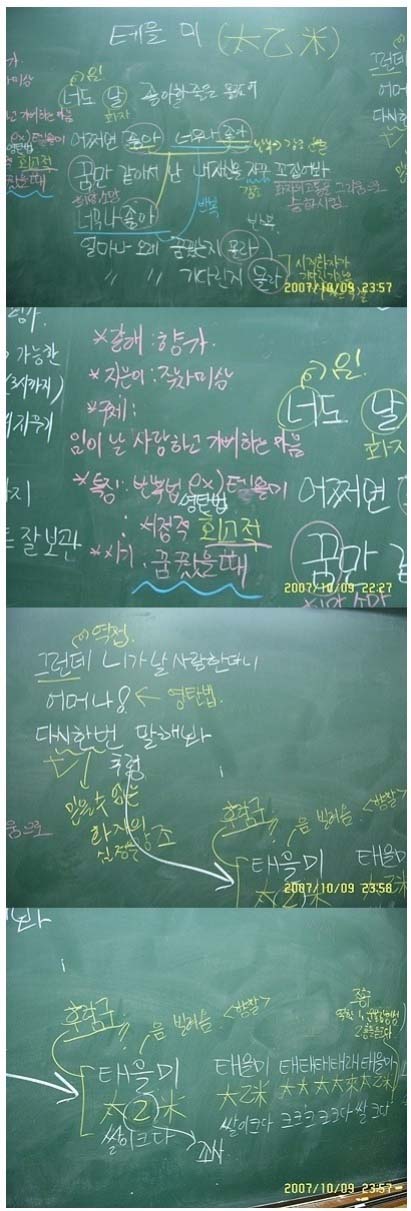 테을미 (太乙米)
임
너도 날 좋아할줄은 몰랐어
화자
어쩌면 좋아 너무나 좋아
꿈만 같아서 난 내자신을 자꾸 꼬집어봐
너무나 좋아
반복
얼마나 오래 꿈꿨는지 몰라
〃 〃 기다린지 몰라
시적화자가
2007/10/09 23:57
*갈래 : 향가
*지은이 : 작자미상
*주제 :
임이 날 사랑하고 기뻐하는 마음
*특징 : 반복법 ex) 테을미
영탄법
: 서정적 회고적
*시기 : 꿈꿨을때
가능한
잘 보관
임
너도 날
화자
어쩌면
꿈만
2007/10/09 22:27
역접
그런데 니가 날 사랑한다니
어머나! ← 영탄법
다시한번 말해봐
믿을수 없는
화자의
심정을 강조
후렴구 음 빌려옴 <방찰>
태을미 태을미
太乙米
2007/10/09 23:58
후렴구
? 음 빌려옴 <방찰>
태을미 태을미 태태태태래태을미
太乙米 太乙米 太太太太來太乙米
쌀이크다 쌀이크다 크크크크다 쌀크다
2007/10/09 23:57